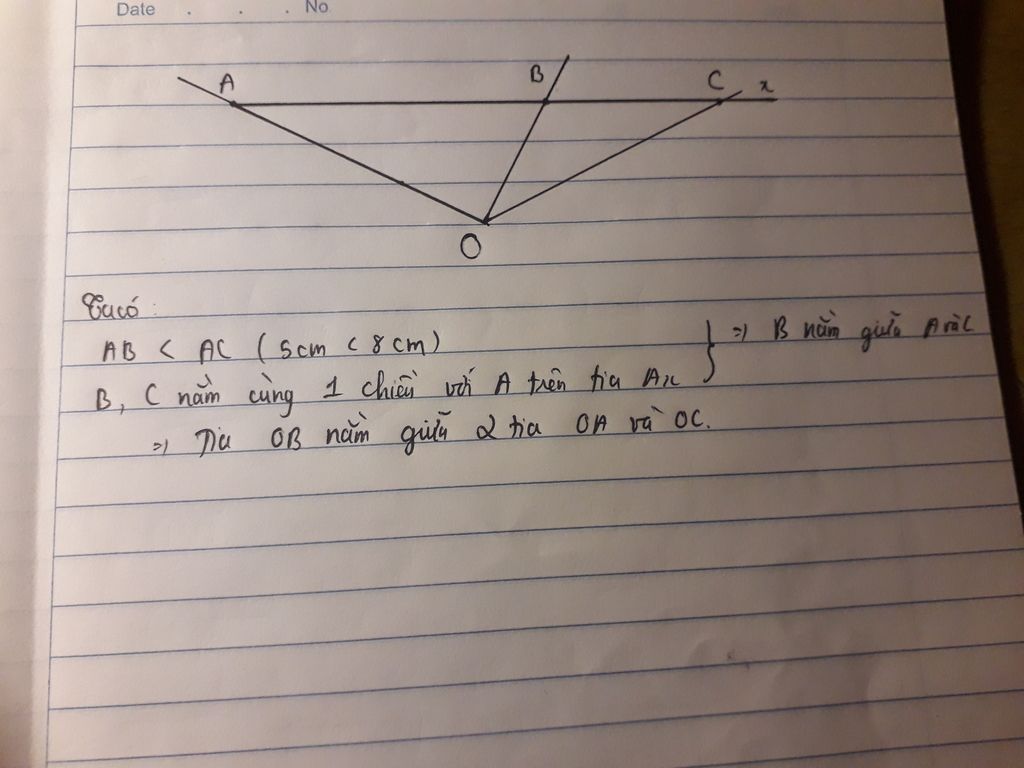 Date . . . No
A B C x
O
Ta có :
AB < AC ( 5cm < 8cm )
B, C nằm cùng 1 chiều với A trên tia Ax } => B nằm giữa A và C
=> Tia OB nằm giữa 2 tia OA và OC.